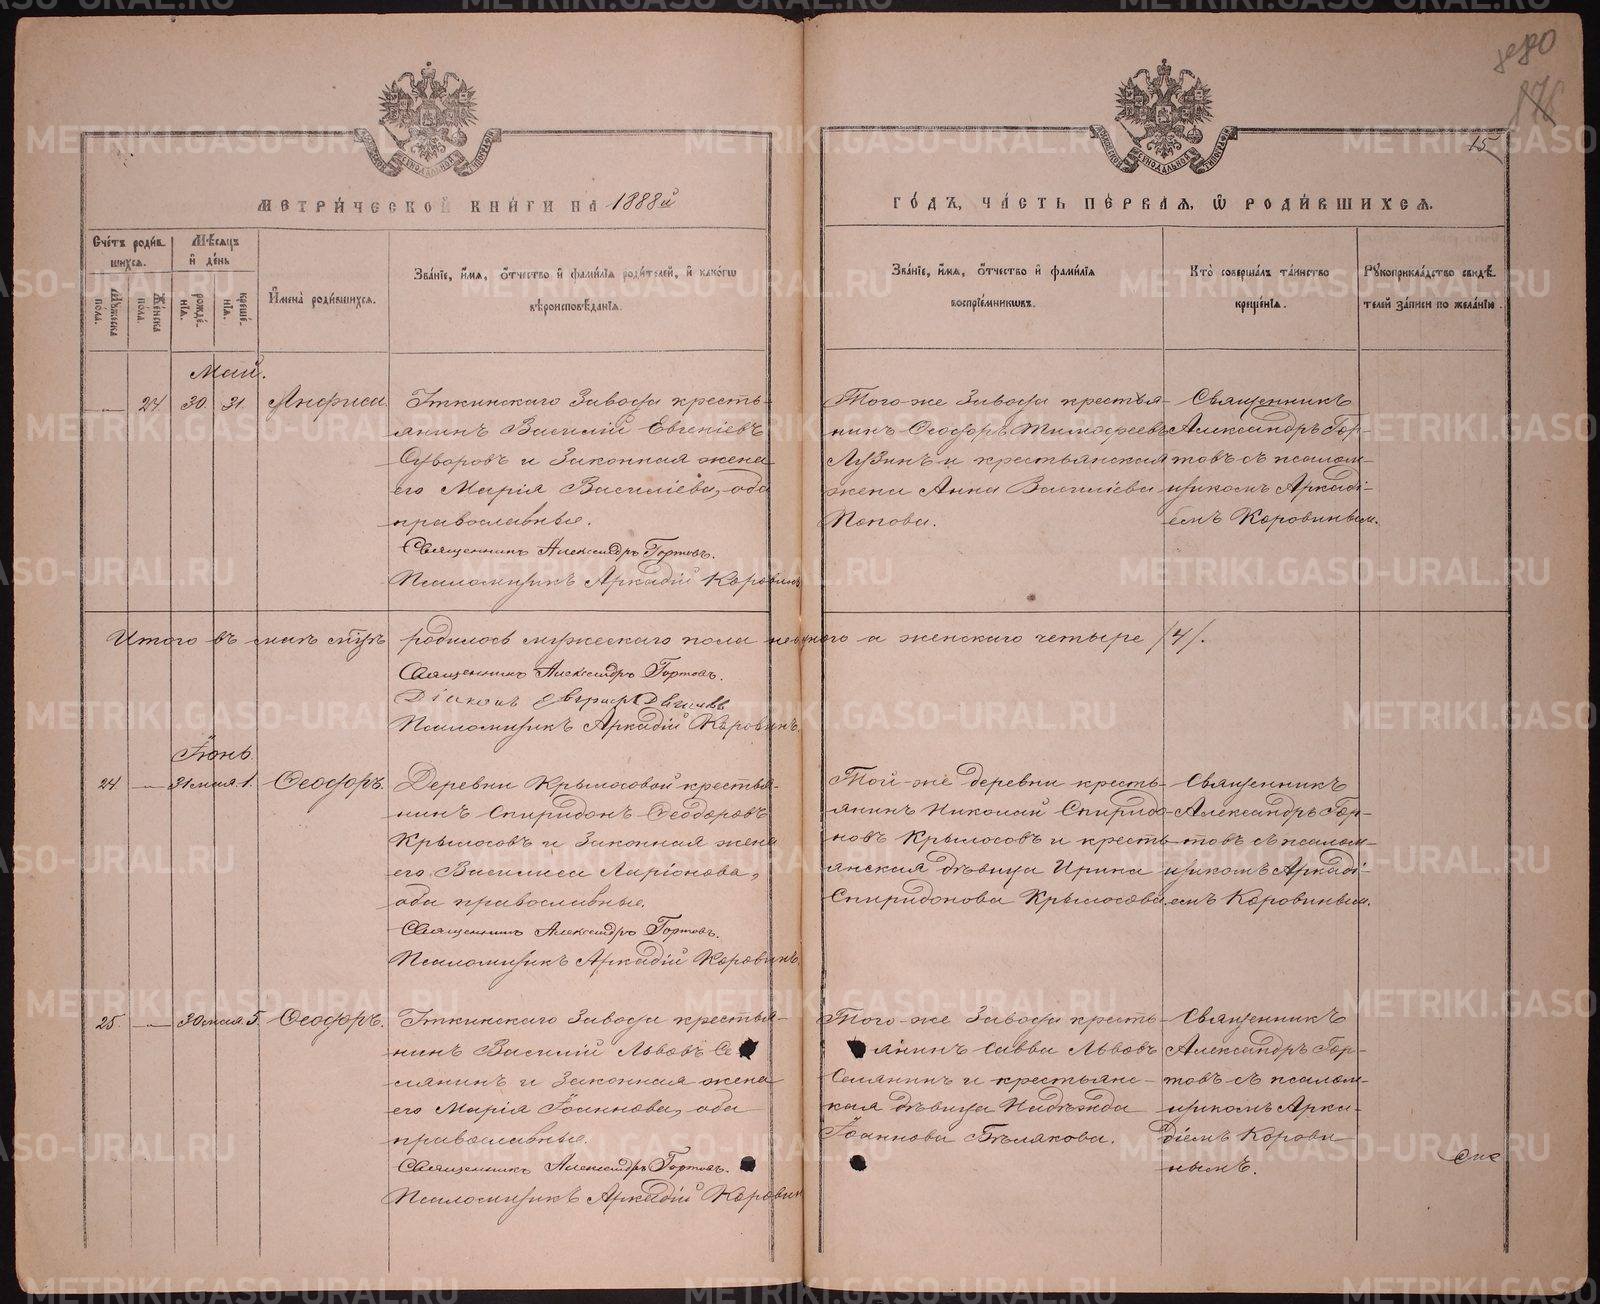 880
876
15
МЕТРИ́ЧЕСКОЙ КНИ́ГИ НА 1888й
ГО́ДЪ, ЧА́СТЬ ПЕ́РВАЯ, Ѡ РОДИ́ВШИХСЯ.
Сче́тъ роди́вшихся.
Му́жеска по́ла.
Же́нска по́ла.
Мѣ́сяцъ и де́нь
рожде́нїя.
креще́нїя.
И́мена роди́вшихся.
Зва́нїе, и́мя, о́тчество и фами́лїя роди́телей, и како́гѡ
вѣроисповѣ́данїя.
Зва́нїе, и́мя, о́тчество и фами́лїя
воспрїе́мникѡвъ.
Кто̀ соверша́лъ та́инство
креще́нїя.
Рꙋкоприкла́дство свидѣ́телей за́писи по жела́нїю.
Май.
24. 30. 31. Анфиса
Уткинскаго Завода кресть-
янинъ Василій Евгеніевъ
Суворовъ и законная жена
его Марія Василіева, оба
православные.
Священникъ Александръ Гортовъ.
Псаломщикъ Аркадій Коровинъ
Того-же Завода крестья-
нинъ Ѳеодоръ Тимофеевъ
Лузинъ и крестьянская
жена Анна Василіева
Попова.
Священникъ
Александръ Гор-
товъ съ псалом-
щикомъ Аркаді-
емъ Коровинымъ.
Итого въ маѣ мѣц. родилось мужескаго пола ни одного и женскаго четыре /4/.
Священникъ Александръ Гортовъ.
Діаконъ
Псаломщикъ Аркадій Коровинъ.
Іюнь
24 31 мая. 1. Ѳеодоръ.
Деревни Крылосовой крестья-
нинъ Спиридонъ Ѳеодоровъ
Крылосовъ и законная жена
его Василиса Ларіонова,
оба православные.
Священникъ Александръ Гортовъ.
Псаломщикъ Аркадій Коровинъ.
Той-же деревни кресть-
янинъ Николай Спиридо-
новъ Крылосовъ и кресть-
янская дѣвица Ирина
Спиридонова Крылосова.
Священникъ
Александръ Гор-
товъ съ псалом-
щикомъ Аркаді-
емъ Коровинымъ.
25. 30 мая. 5. Ѳеодоръ.
Уткинскаго Завода крестья-
нинъ Василій Львовъ Се-
лянинъ и законная жена
его Марія Іоаннова, оба
православные.
Священникъ Александръ Гортовъ.
Псаломщикъ Аркадій Коровин
Того-же Завода кресть-
янинъ Савва Львовъ
Селянин и крестьянс-
кая дѣвица Надежда
Іоаннова Бѣлякова.
Священникъ
Александръ Гор-
товъ съ псалом-
щикомъ Арка-
діемъ Корови-
нымъ.
METRIKI.GASO-URAL.RU